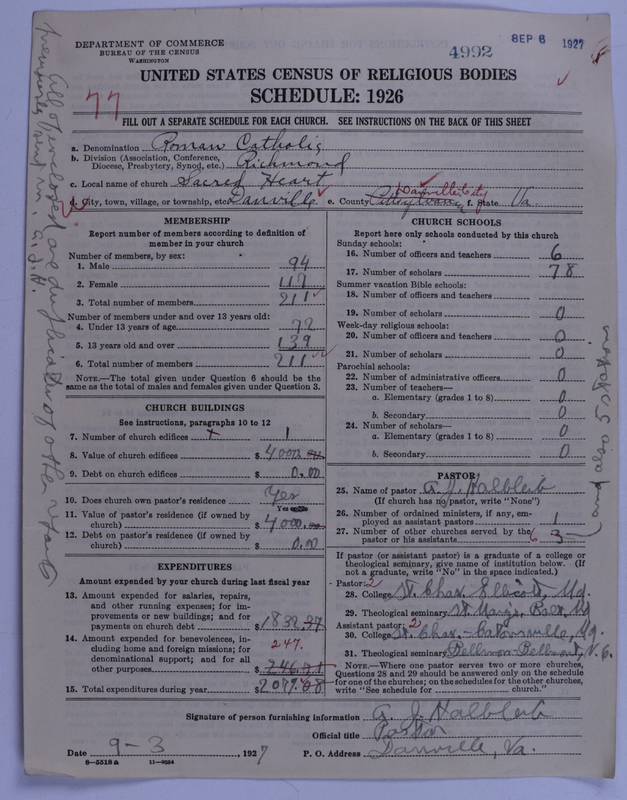 DEPARTMENT OF COMMERCE
BUREAU OF THE CENSUS
WASHINGTON
4992
SEP 6 1927
UNITED STATES CENSUS OF RELIGIOUS BODIES
SCHEDULE: 1926
77
FILL OUT A SEPARATE SCHEDULE FOR EACH CHURCH. SEE INSTRUCTIONS ON THE BACK OF THIS SHEET
a. Denomination Roman Catholic
b. Division (Association, Conference, Diocese, Presbytery, Synod, etc.) Richmond
c. Local name of church Sacred Heart
Danville City
d. City, town, village, or township, etc. Danville e. County Pittsylvania f. State Va.
MEMBERSHIP
Report number of members according to definition of
member in your church
Number of members, by sex:
1. Male 94
2. Female 117
3. Total number of members 211
Number of members under and over 13 years old:
4. Under 13 years of age 72
5. 13 years old and over 139
6. Total number of members 211
NOTE.—The total given under Question 6 should be the
same as the total of males and females given under Question 3.
CHURCH BUILDINGS
See instructions, paragraphs 10 to 12
7. Number of church edifices 1
8. Value of church edifices $4000
9. Debt on church edifices $0.00
10. Does church own pastor's residence Yes
Yes or no
11. Value of pastor's residence (if owned by
church) $4000
12. Debt on pastor's residence (if owned by
church) $0.00
EXPENDITURES
Amount expended by your church during last fiscal year
13. Amount expended for salaries, repairs,
and other running expenses; for im-
provements or new buildings; and for
payments on church debt $1832.37
14. Amount expended for benevolences, in- 247.
cluding home and foreign missions; for
denominational support; and for all
other purposes $246.71
15. Total expenditures during year $2079.08
CHURCH SCHOOLS
Report here only schools conducted by this church
Sunday schools:
16. Number of officers and teachers 6
17. Number of scholars 78
Summer vacation Bible schools:
18. Number of officers and teachers
19. Number of scholars 0
Week-day religious schools:
20. Number of officers and teachers 0
21. Number of scholars 0
Parochial schools:
22. Number of administrative officers 0
23. Number of teachers—
a. Elementary (grades 1 to 8) 0
b. Secondary 0
24. Number of scholars—
a. Elementary (grades 1 to 8) 0
b. Secondary 0
PASTOR
25. Name of pastor A. J. Halbleib
(If church has no pastor, write "None")
26. Number of ordained ministers, if any, em-
ployed as assistant pastors 1
27. Number of other churches served by the
pastor or his assistants 6 3
and also 3 stations
If pastor (or assistant pastor) is a graduate of a college or
theological seminary, give name of institution below. (If
not a graduate, write "No" in the space indicated.)
Pastor: 2
28. College St. Chas. Ellicott, Md.
29. Theological seminary St. Marys, Balt., Md
Assistant pastor: 2
30. College St. Chas.-Catonsville, Md.
31. Theological seminary Belmont-Belmont, N.C.
NOTE.—Where one pastor serves two or more churches,
Questions 28 and 29 should be answered only on the schedule
for one of the churches; on the schedules for the other churches,
write "See schedule for church."
Signature of person furnishing information A. J. Halbleib
Official title Pastor
Date 9-3, 1927 P. O. Address Danville, Va.
8-5518a 11-9034
All of enclosed are duplicates of other reports
previously sent in. A.J.H.